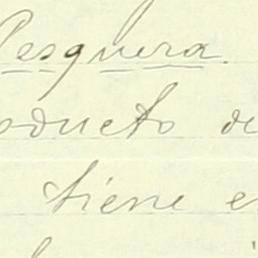 Pesquera.
oducto de
tiene e